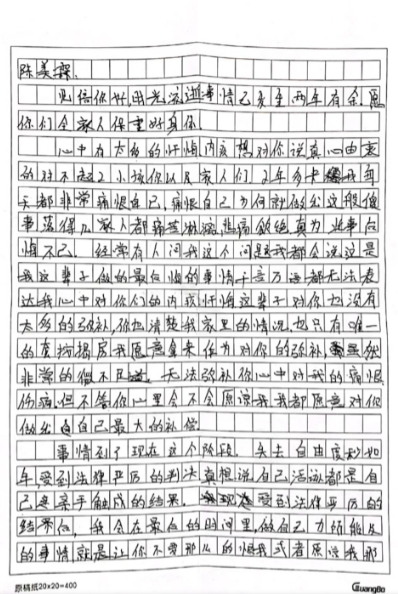 陈美霖.
见信你好,时光流逝事情已发生两年有余.愿
你们全家人保重好身体.
心中有太多的忏悔内疚想对你说真心由衷
的对不起2小孩你以及家人们.2年多我每
天都非常痛恨自己,痛恨自己为何就做出这般傻
事落得几家人都痛苦淋漓悲痛欲绝真为此事后
悔不已.经常有人问我这个问题我都会说这是
我这辈子做的最后悔的事情千言万语都无法表
达我心中对你们的内疚忏悔这辈子对你也没有
太多的弥补,你也清楚我家里的情况.也只有唯一
的房我愿意拿来作为对你的弥补虽然
非常的微不足道.无法弥补你心中对我的痛恨
伤痛.但不管你心里会不会原谅我我都愿意对你
做出自己最大的补偿.
事情到了现在这个阶段.失去自由度秒如
年,受到法律严厉的判决真想说自己活该都是自
己亲手触成的结果.现受到法律严厉的
结果后,我会在最后的时间里,做自己力所能及
的事情就是让你不要那么的恨我或者原谅我那
原稿纸20×20=400
GuangBo